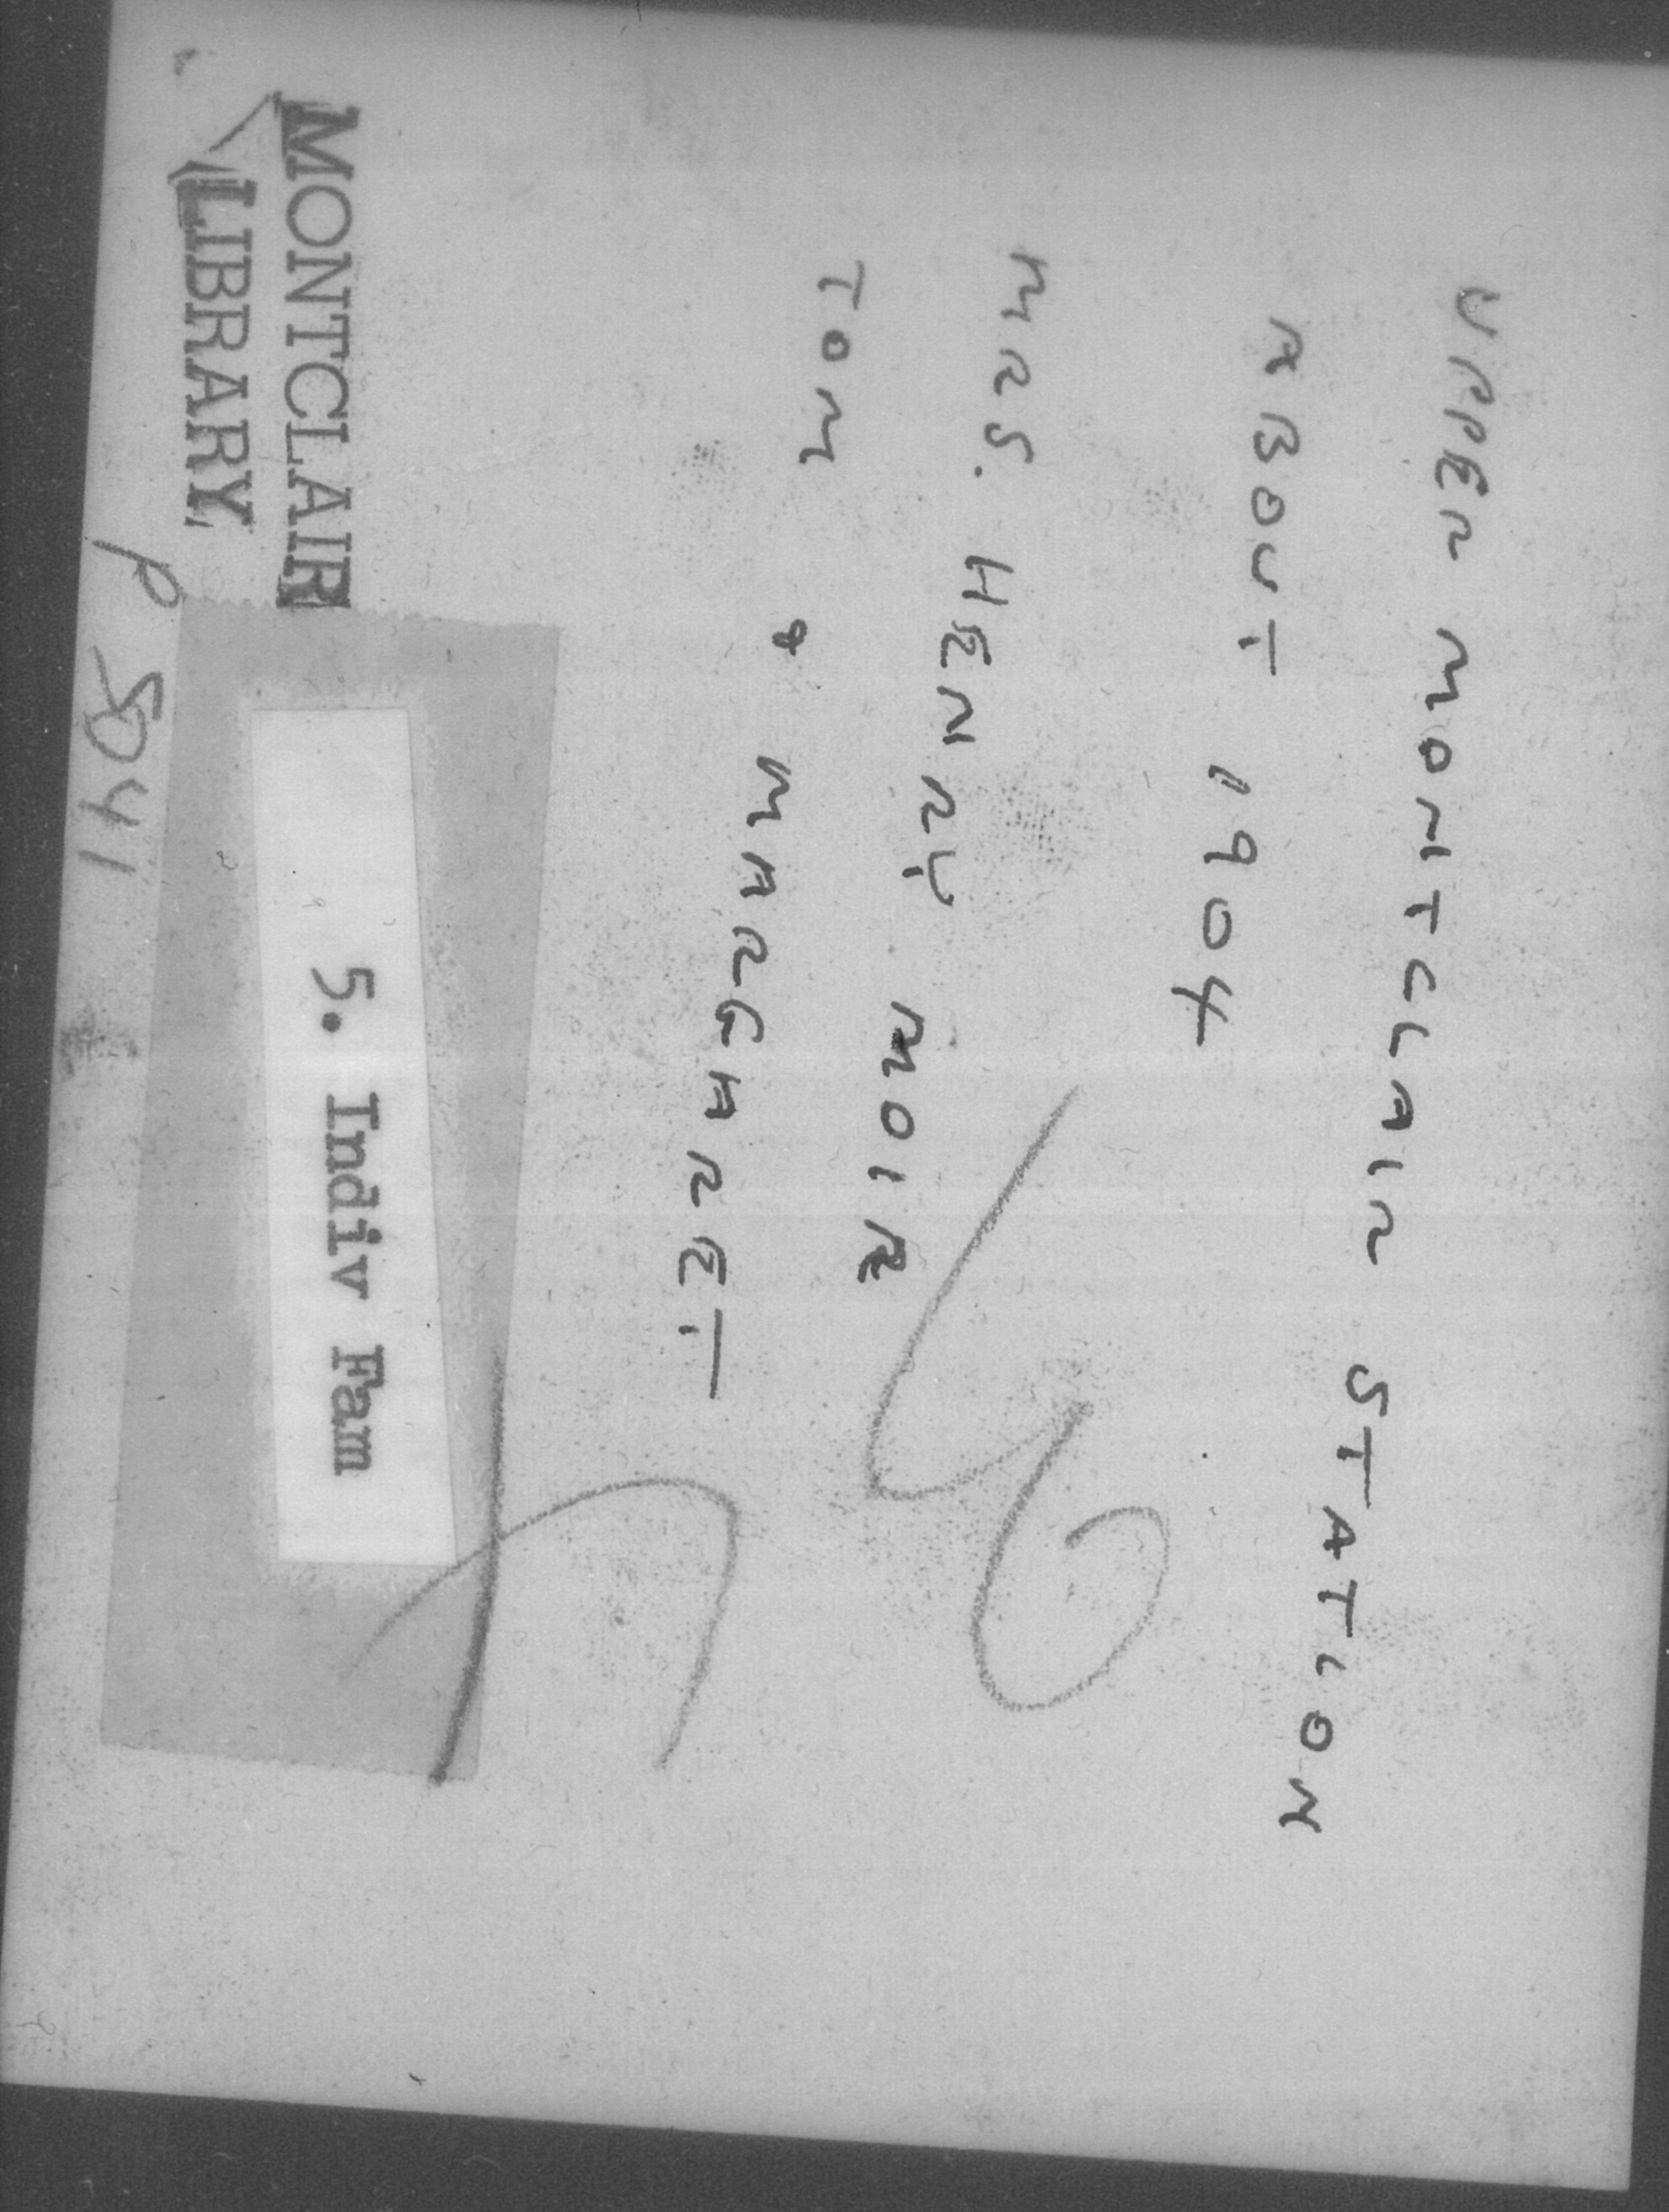 UPPER MONTCLAIR STATION
ABOUT 1904
MRS. HENRY MOIR
TOM & MARGARET
5. Indiv Fam
MONTCLAIR
LIBRARY
P 5041